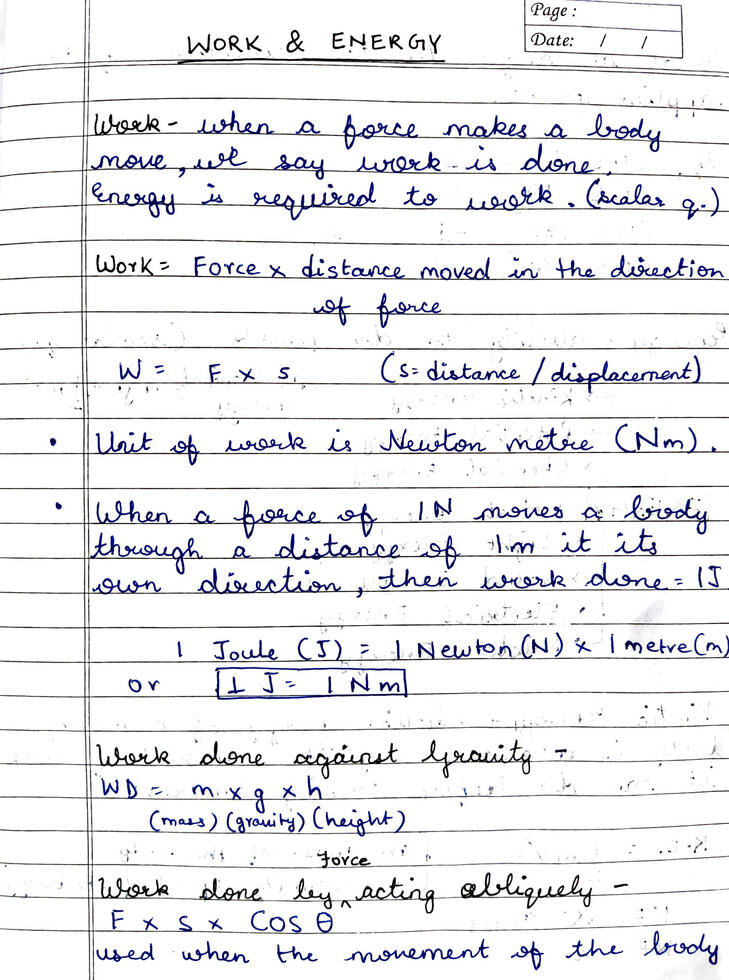 Page :
Date: / /
WORK & ENERGY
Work - when a force makes a body
move, we say work is done.
Energy is required to work. (scalar q.)
Work = Force x distance moved in the direction
of force
W = F x s (s = distance / displacement)
• Unit of work is Newton metre (Nm).
• When a force of 1N moves a body
through a distance of 1m it its
own direction, then work done = 1J
1 Joule (J) = 1 Newton (N) x 1 metre (m)
or 1 J = 1 Nm
Work done against Gravity -
WD = m x g x h
(mass) (gravity) (height)
Force
Work done by ^ acting obliquely -
F x S x COS θ
used when the movement of the body